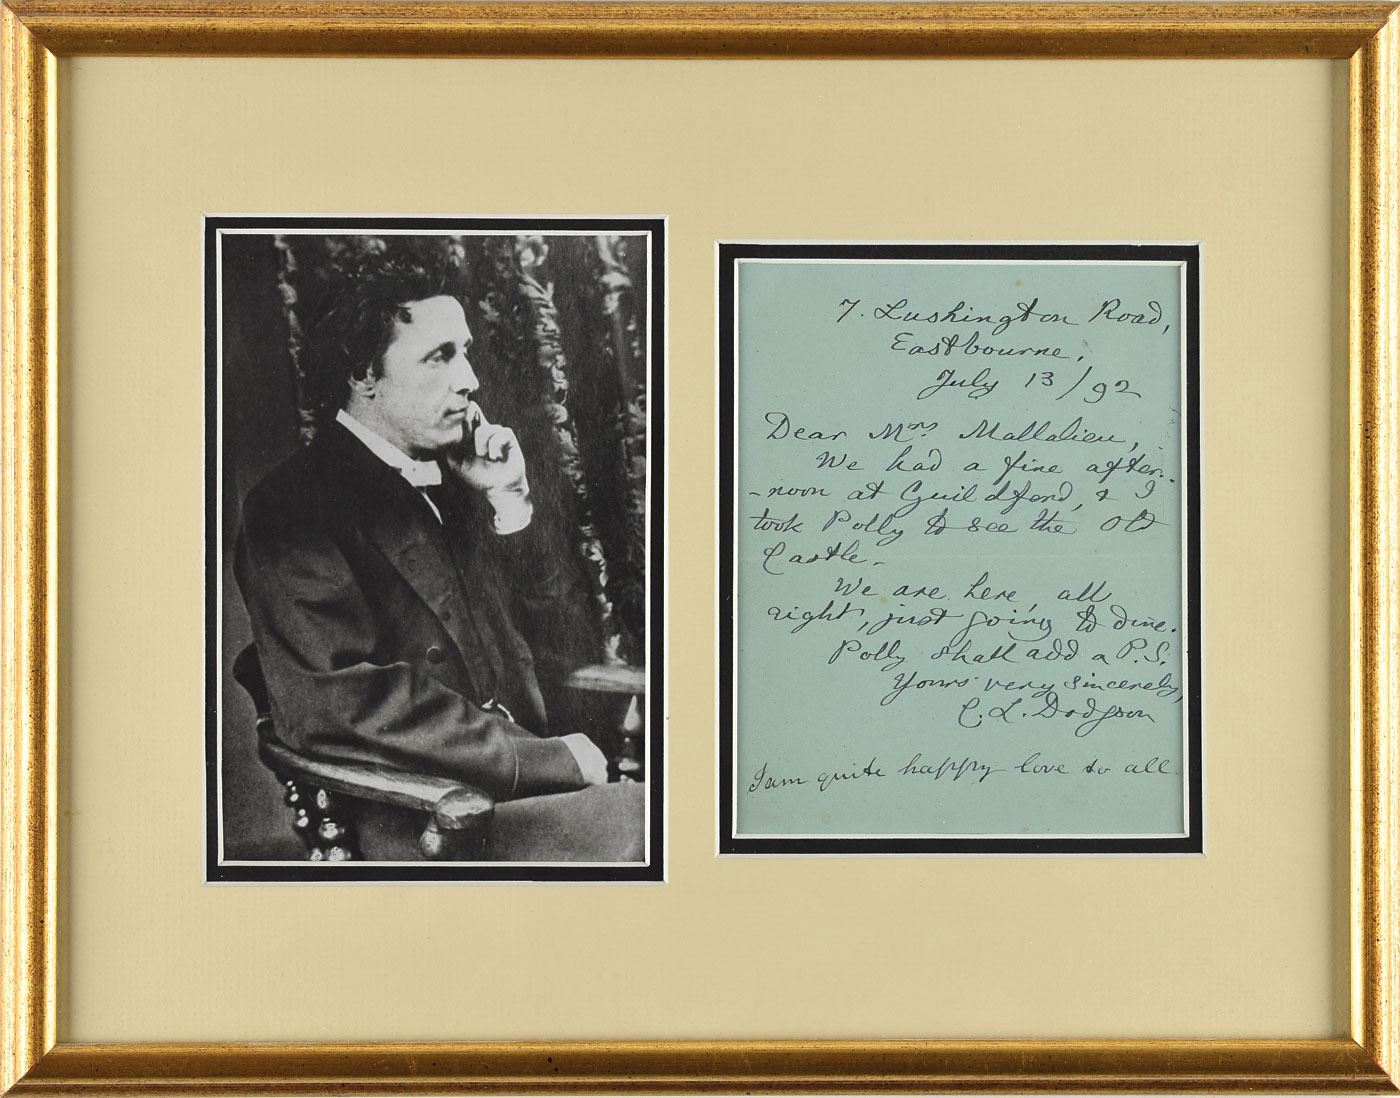 7. Lushington Road,
Eastbourne.
July 13/92
Dear Mrs Mallalieu,
We had a fine after-
-noon at Guildford, & I
took Polly to see the Old
Castle.
We are here, all
right, just going to dine.
Polly shall add a P.S.
Yours very sincerely,
C. L. Dodgson
I am quite happy love to all